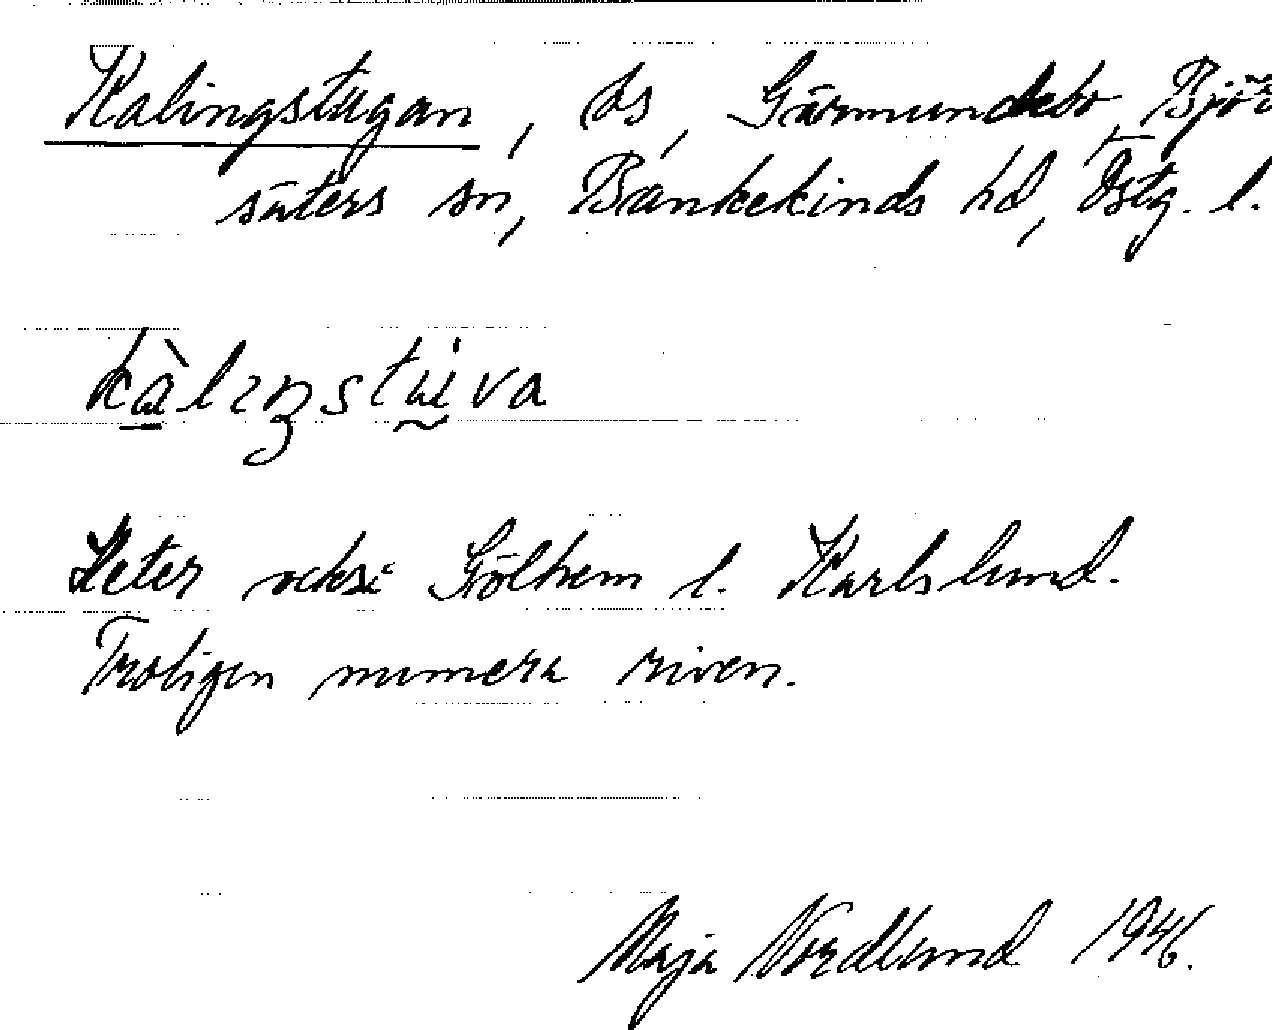 Kalingstugan, ds, Gärmundebo, Björ
säters sn, Bankekinds hd, Östg. l.
kàliŋstu̇va
Heter också Sölhem l. Karlslund.
Troligen numera riven.
Maja Nordlund 1946.